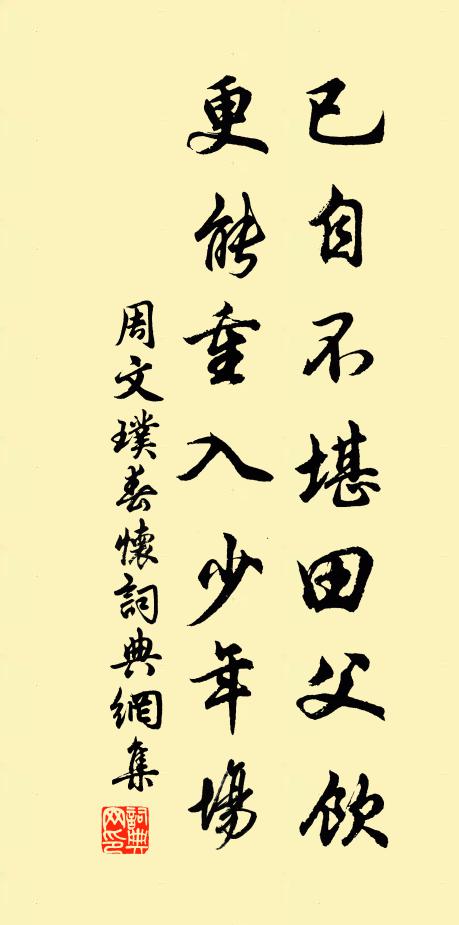 已自不堪田父飲
更能重入少年場
周文璞春懷詞典網集
詞典网印